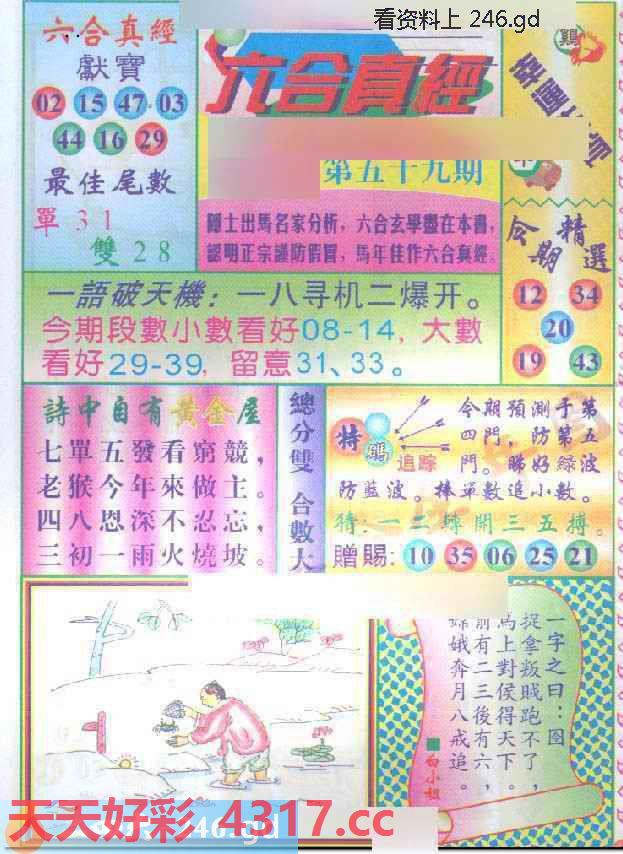 看资料上 246.gd
六合真經
獻寶
02 15 47 03
44 16 29
最佳尾數
單 31
雙 28
六合真經
第五十九期
隱士出馬名家分析，六合玄學盡在本書，
認明正宗謹防假冒，馬年佳作六合真經。
今期精選
12 34
20
19 43
一語破天機：一八寻机二爆开。
今期段數小數看好08-14，大數
看好29-39，留意31、33。
詩中自有黃金屋
七單五發看窮競，
老猴今年來做主。
四八恩深不忍忘，
三初一雨火燒坡。
總分雙 合數大
特碼
追踪
今期預測于第
四門，防第五
門。睇好綠波
防藍波。捧單數追小數。
猜：一二球開三五搏。
贈賜：10 35 06 25 21
一字之曰：图
捉拿叛賊跑不了，
馬上對侯得天下。
前有二三後有六，
嫦娥奔月八戒追。
白小姐
天天好彩 4317.cc
246.gd